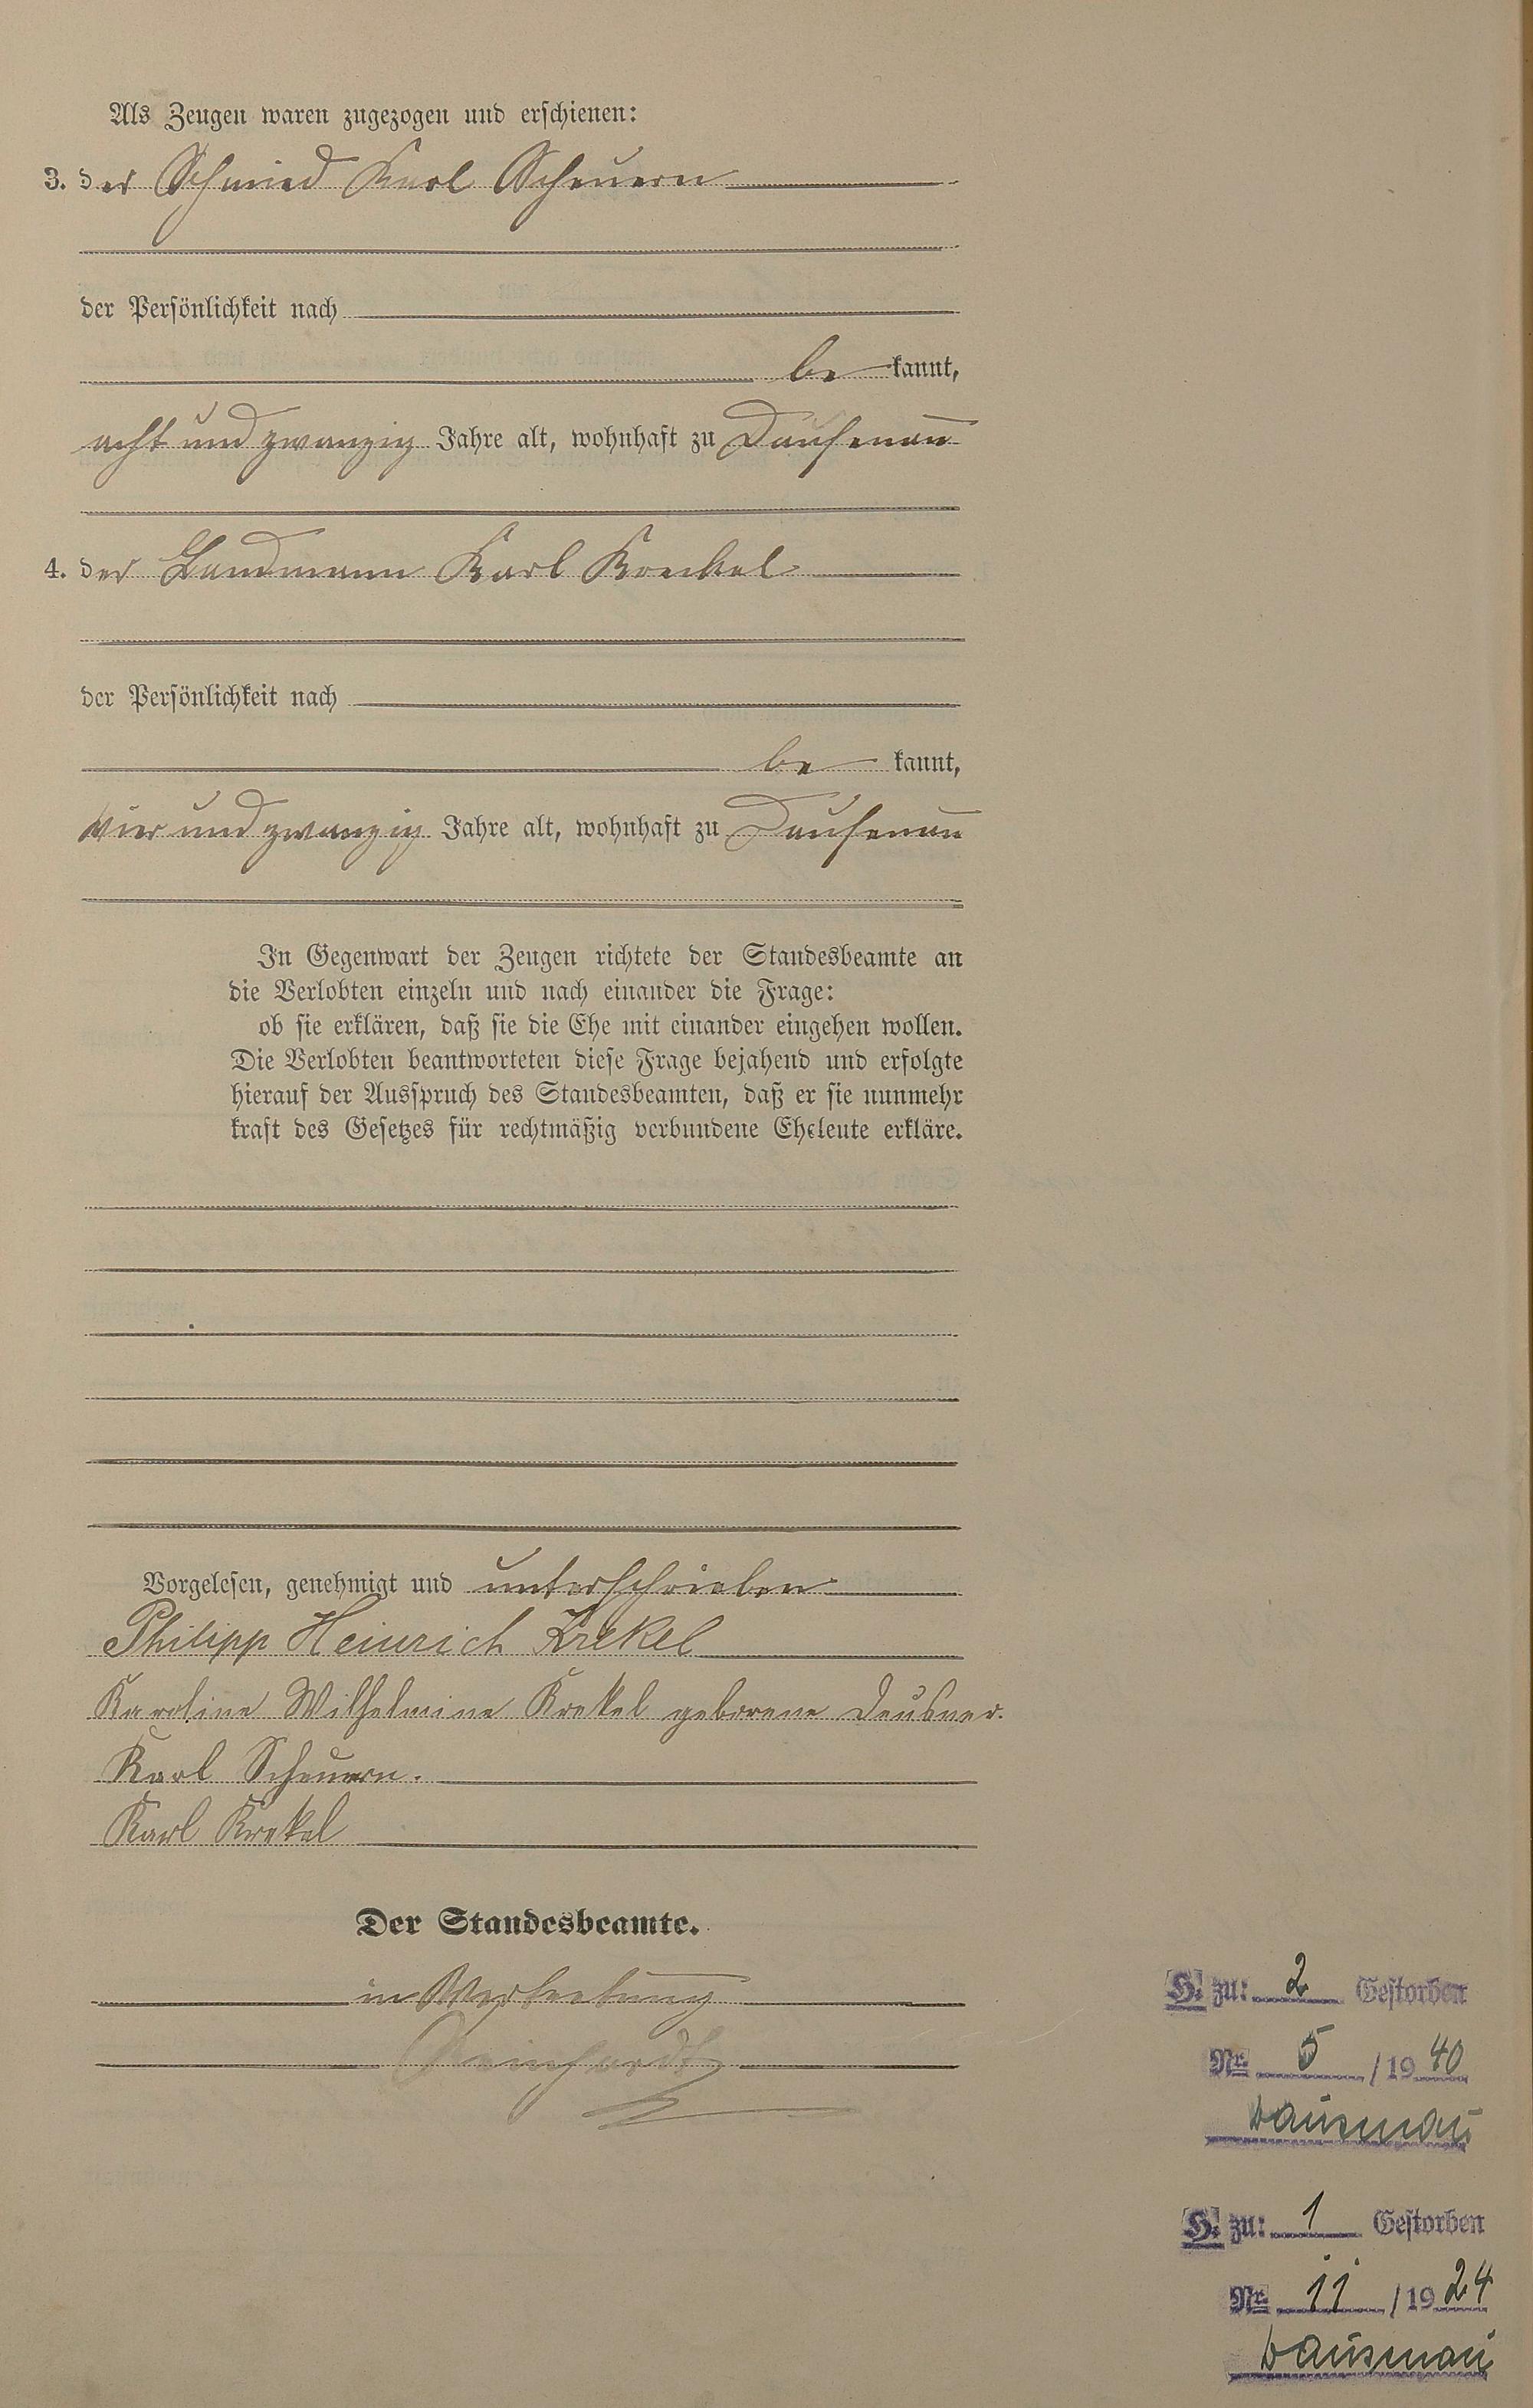 Als Zeugen waren zugezogen und erschienen:
3. der Schmied Karl Scheuern
der Persönlichkeit nach
be kannt,
acht und zwanzig Jahre alt, wohnhaft zu Dausenau
4. der Landmann Karl Kreckel
der Persönlichkeit nach
be kannt,
vier und zwanzig Jahre alt, wohnhaft zu Dausenau
In Gegenwart der Zeugen richtete der Standesbeamte an
die Verlobten einzeln und nach einander die Frage:
ob sie erklären, daß sie die Ehe mit einander eingehen wollen.
Die Verlobten beantworteten diese Frage bejahend und erfolgte
hierauf der Ausspruch des Standesbeamten, daß er sie nunmehr
kraft des Gesetzes für rechtmäßig verbundene Eheleute erkläre.
Vorgelesen, genehmigt und unterschrieben
Philipp Heinrich Krekel
Karoline Wilhelmine Krekel geborene Deusner.
Karl Scheuern.
Karl Krekel
Der Standesbeamte.
in Vertretung
Reinhardt
H. zu: 2 Gestorben
Nr. 5 /1940
Dausenau
H. zu: 1 Gestorben
Nr. 11 /1924
Dausenau